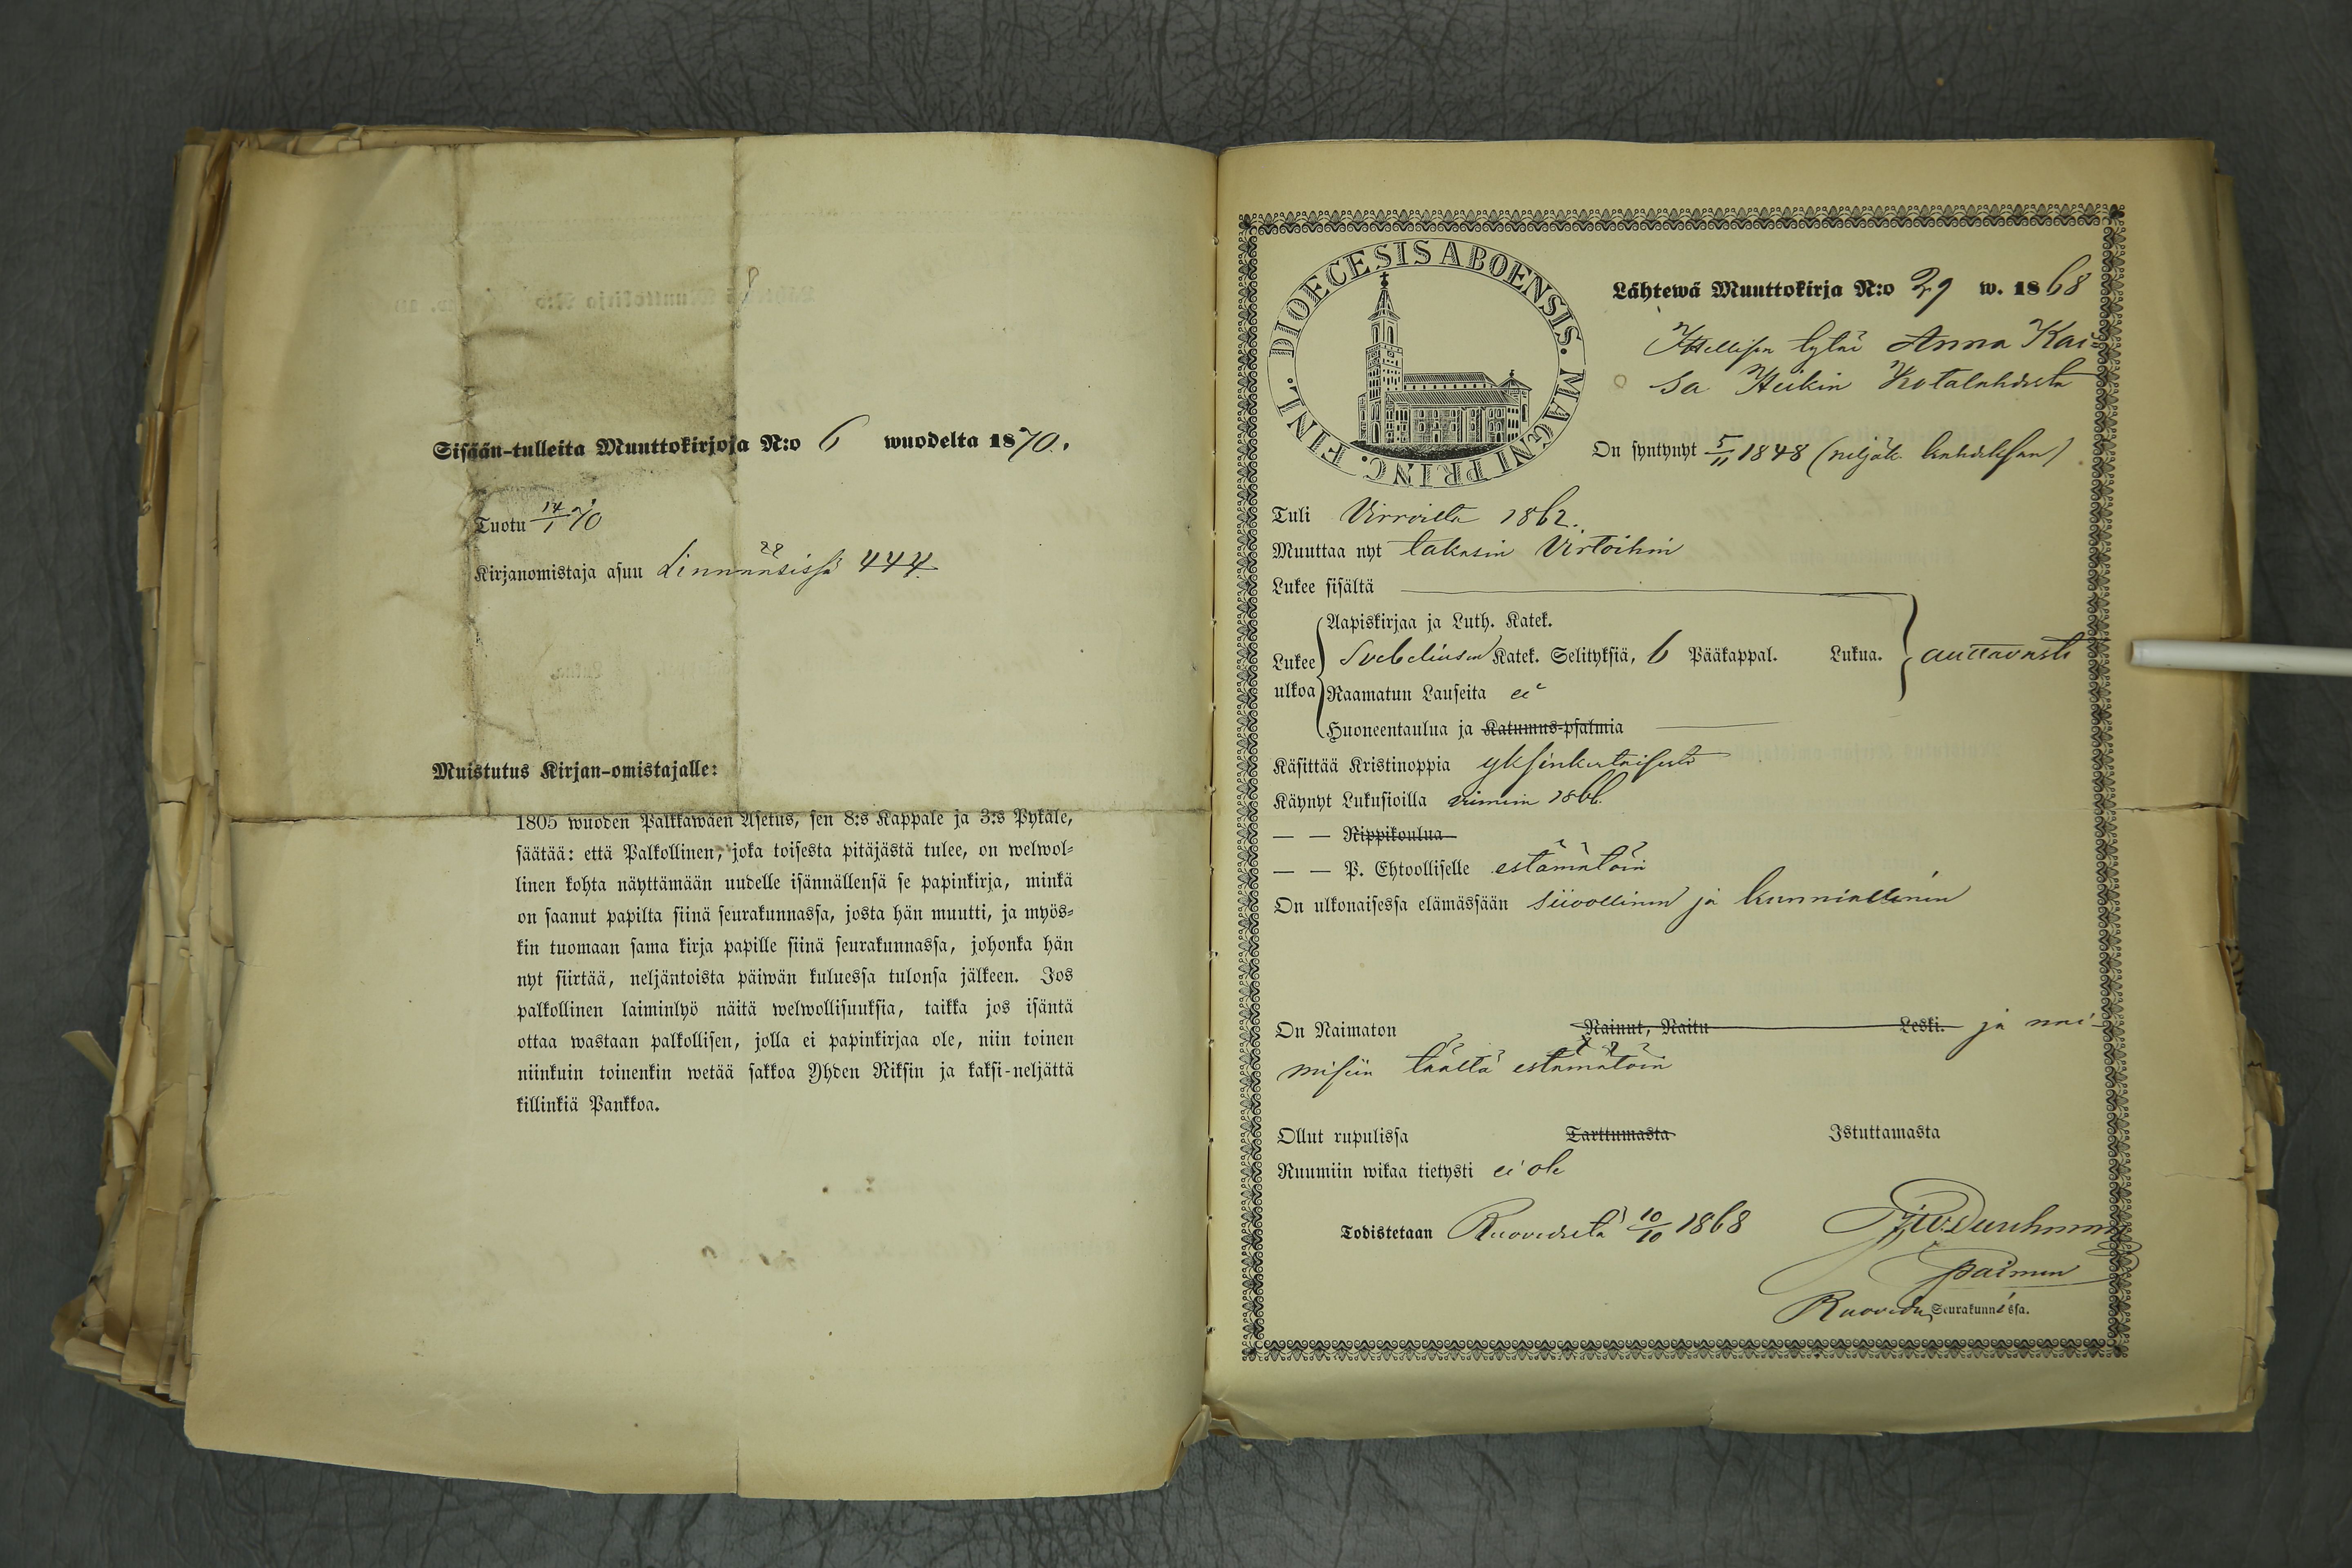 Sisään-tulleita Muuttokirjoja N:o 6 wuodelta 1870.
Tuotu 14/1 70
28
Kirjanomistaja asuu 444
Muistutus Kirjan-omistajalle:
1805 wuoden Palkkawäen Asetus, sen 8:s Kappale ja 3:s Pykäle,
säätää: että Palkollinen, joka toisesta pitäjästä tulee, on welwol-
linen kohta näyttämään uudelle isännällensä se papinkirja, minkä
on saanut papilta siinä seurakunnassa, josta hän muutti, ja myös-
kin tuomaan sama kirja papille siinä seurakunnassa, johonka hän
nyt siirtää, neljäntoista päiwän kuluessa tulonsa jälkeen. Jos
palkollinen laiminlyö näitä welwollisuuksia, taikka jos isäntä
ottaa wastaan palkollisen, jolla ei papinkirjaa ole, niin toinen
niinkuin toinenkin wetää sakkoa Yhden Riksin ja kaksi-neljättä
killinkiä Pankkoa.
DIOECESIS ABOENSIS. MAGNI PRINC. FINL.
Lähtewä Muuttokirja N:o 29 w. 1868
Itsellisen tytär Anna Kai-
sa Heikin Kotalahdesta
On syntynyt 5/11 1848 (neljäk. kahdeksan)
Tuli Virroilta 1862.
Muuttaa nyt takasin Virtoihin
Lukee sisältä
Lukee ulkoa
Aapiskirjaa ja Luth. Katek.
Svebeliusen Katek. Selityksiä, 6 Pääkappal. Lukua. auttavasti
Raamatun Lauseita ei
Huoneentaulua ja Katumus-psalmia
Käsittää Kristinoppia yksinkertaisesti
Käynyt Lukusioilla viimein 1866.
— — Rippikoulua
— — P. Ehtoolliselle estämätöin
On ulkonaisessa elämässään siivollinen ja kunniallinen
On Naimaton Nainut, Naitu Leski. ja nai-
misiin täältä estämätöin
Ollut rupulissa Tarttumasta Istuttamasta
Ruumiin wikaa tietysti ei ole
Todistetaan Ruovedeltä 10/10 1868
paimen
Ruoveden Seurakunnassa.